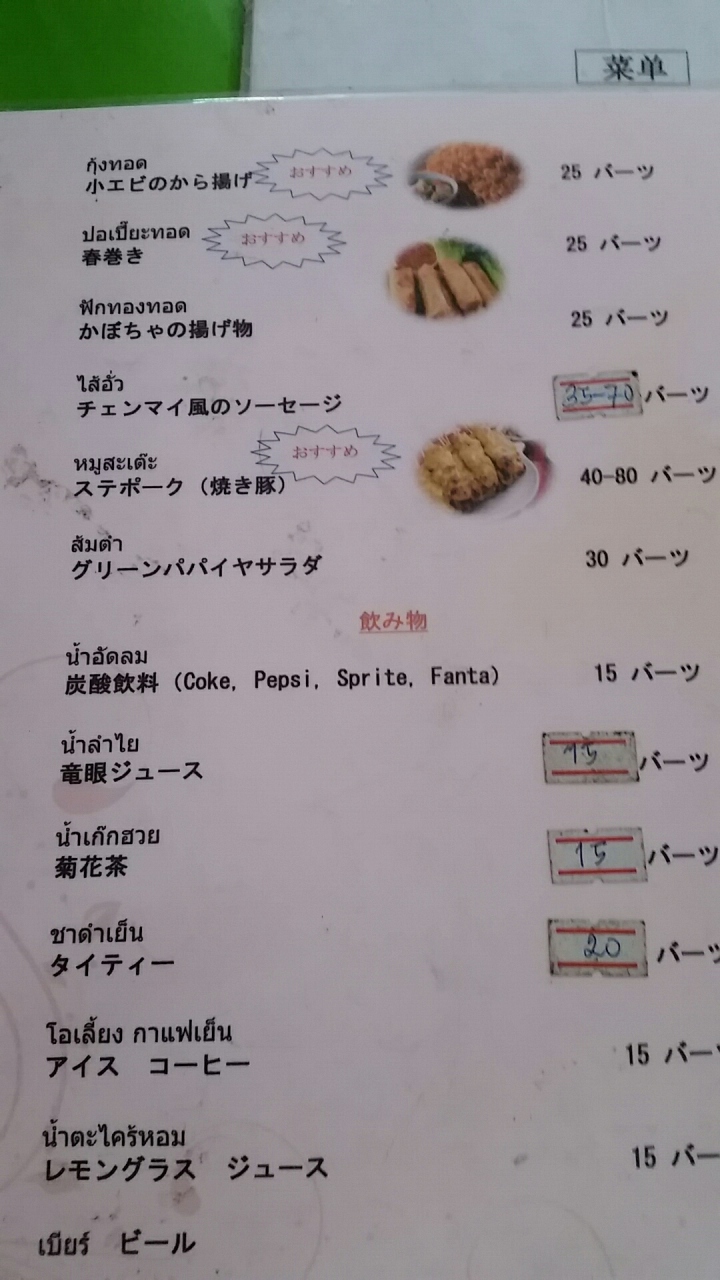 菜单
กุ้งทอด
小エビのから揚げ おすすめ 25 バーツ
ปอเปี๊ยะทอด
春巻き おすすめ 25 バーツ
ฟักทองทอด
かぼちゃの揚げ物 25 バーツ
ไส้อั่ว
チェンマイ風のソーセージ 35-70 バーツ
หมูสะเต๊ะ
ステポーク（焼き豚） おすすめ 40-80 バーツ
ส้มตำ
グリーンパパイヤサラダ 30 バーツ
飲み物
น้ำอัดลม
炭酸飲料（Coke, Pepsi, Sprite, Fanta） 15 バーツ
น้ำลำไย
竜眼ジュース 15 バーツ
น้ำเก๊กฮวย
菊花茶 15 バーツ
ชาดำเย็น
タイティー 20 バーツ
โอเลี้ยง กาแฟเย็น
アイス コーヒー 15 バー
น้ำตะไคร้หอม
レモングラス ジュース 15 バー
เบียร์ ビール